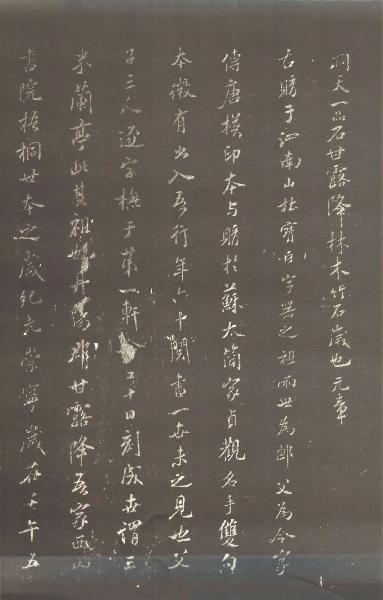 洞天一品石甘露降林木竹石歲也元章
右得于泗南山杜寶臣字器之祖兩世為郎父為令家
傳唐模印本与得於蘇太簡家貞觀名手雙勾
本微有出入吾行年六十閱書一世未之見也父
子三人逐字模于第一軒五十日刻成世謂三
米蘭亭此其祖也丹陽郡甘露降吾家西山
書院梧桐世本之歲紀元崇寧歲在壬午五